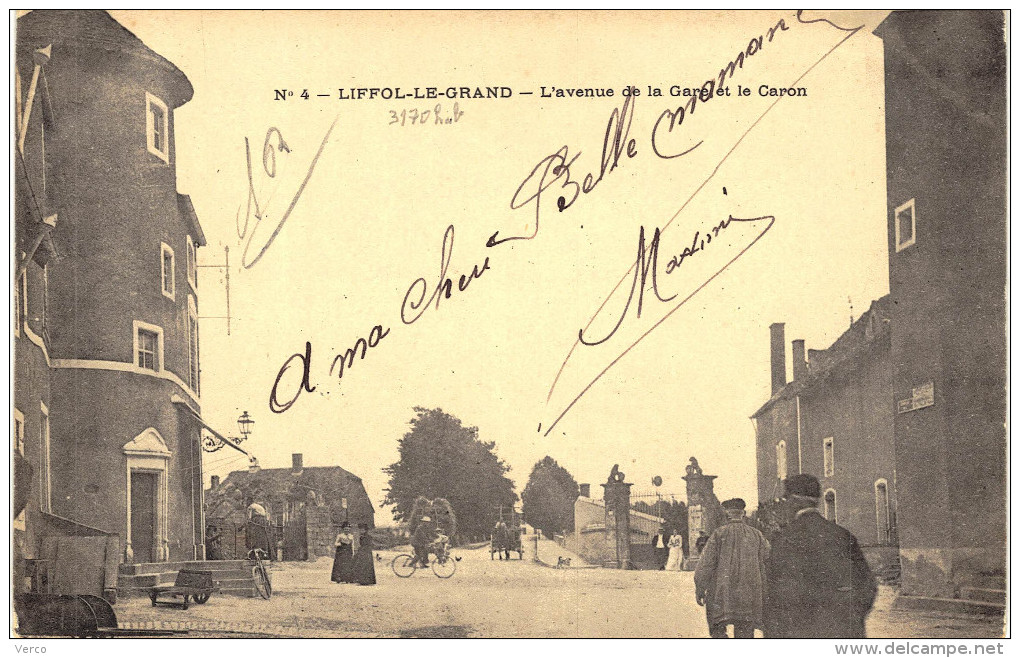 Nº 4 — LIFFOL-LE-GRAND — L'avenue de la Gare et le Caron
3170 hab
A ma cheri Belle maman
Maxime
Verco
© delcampe.net